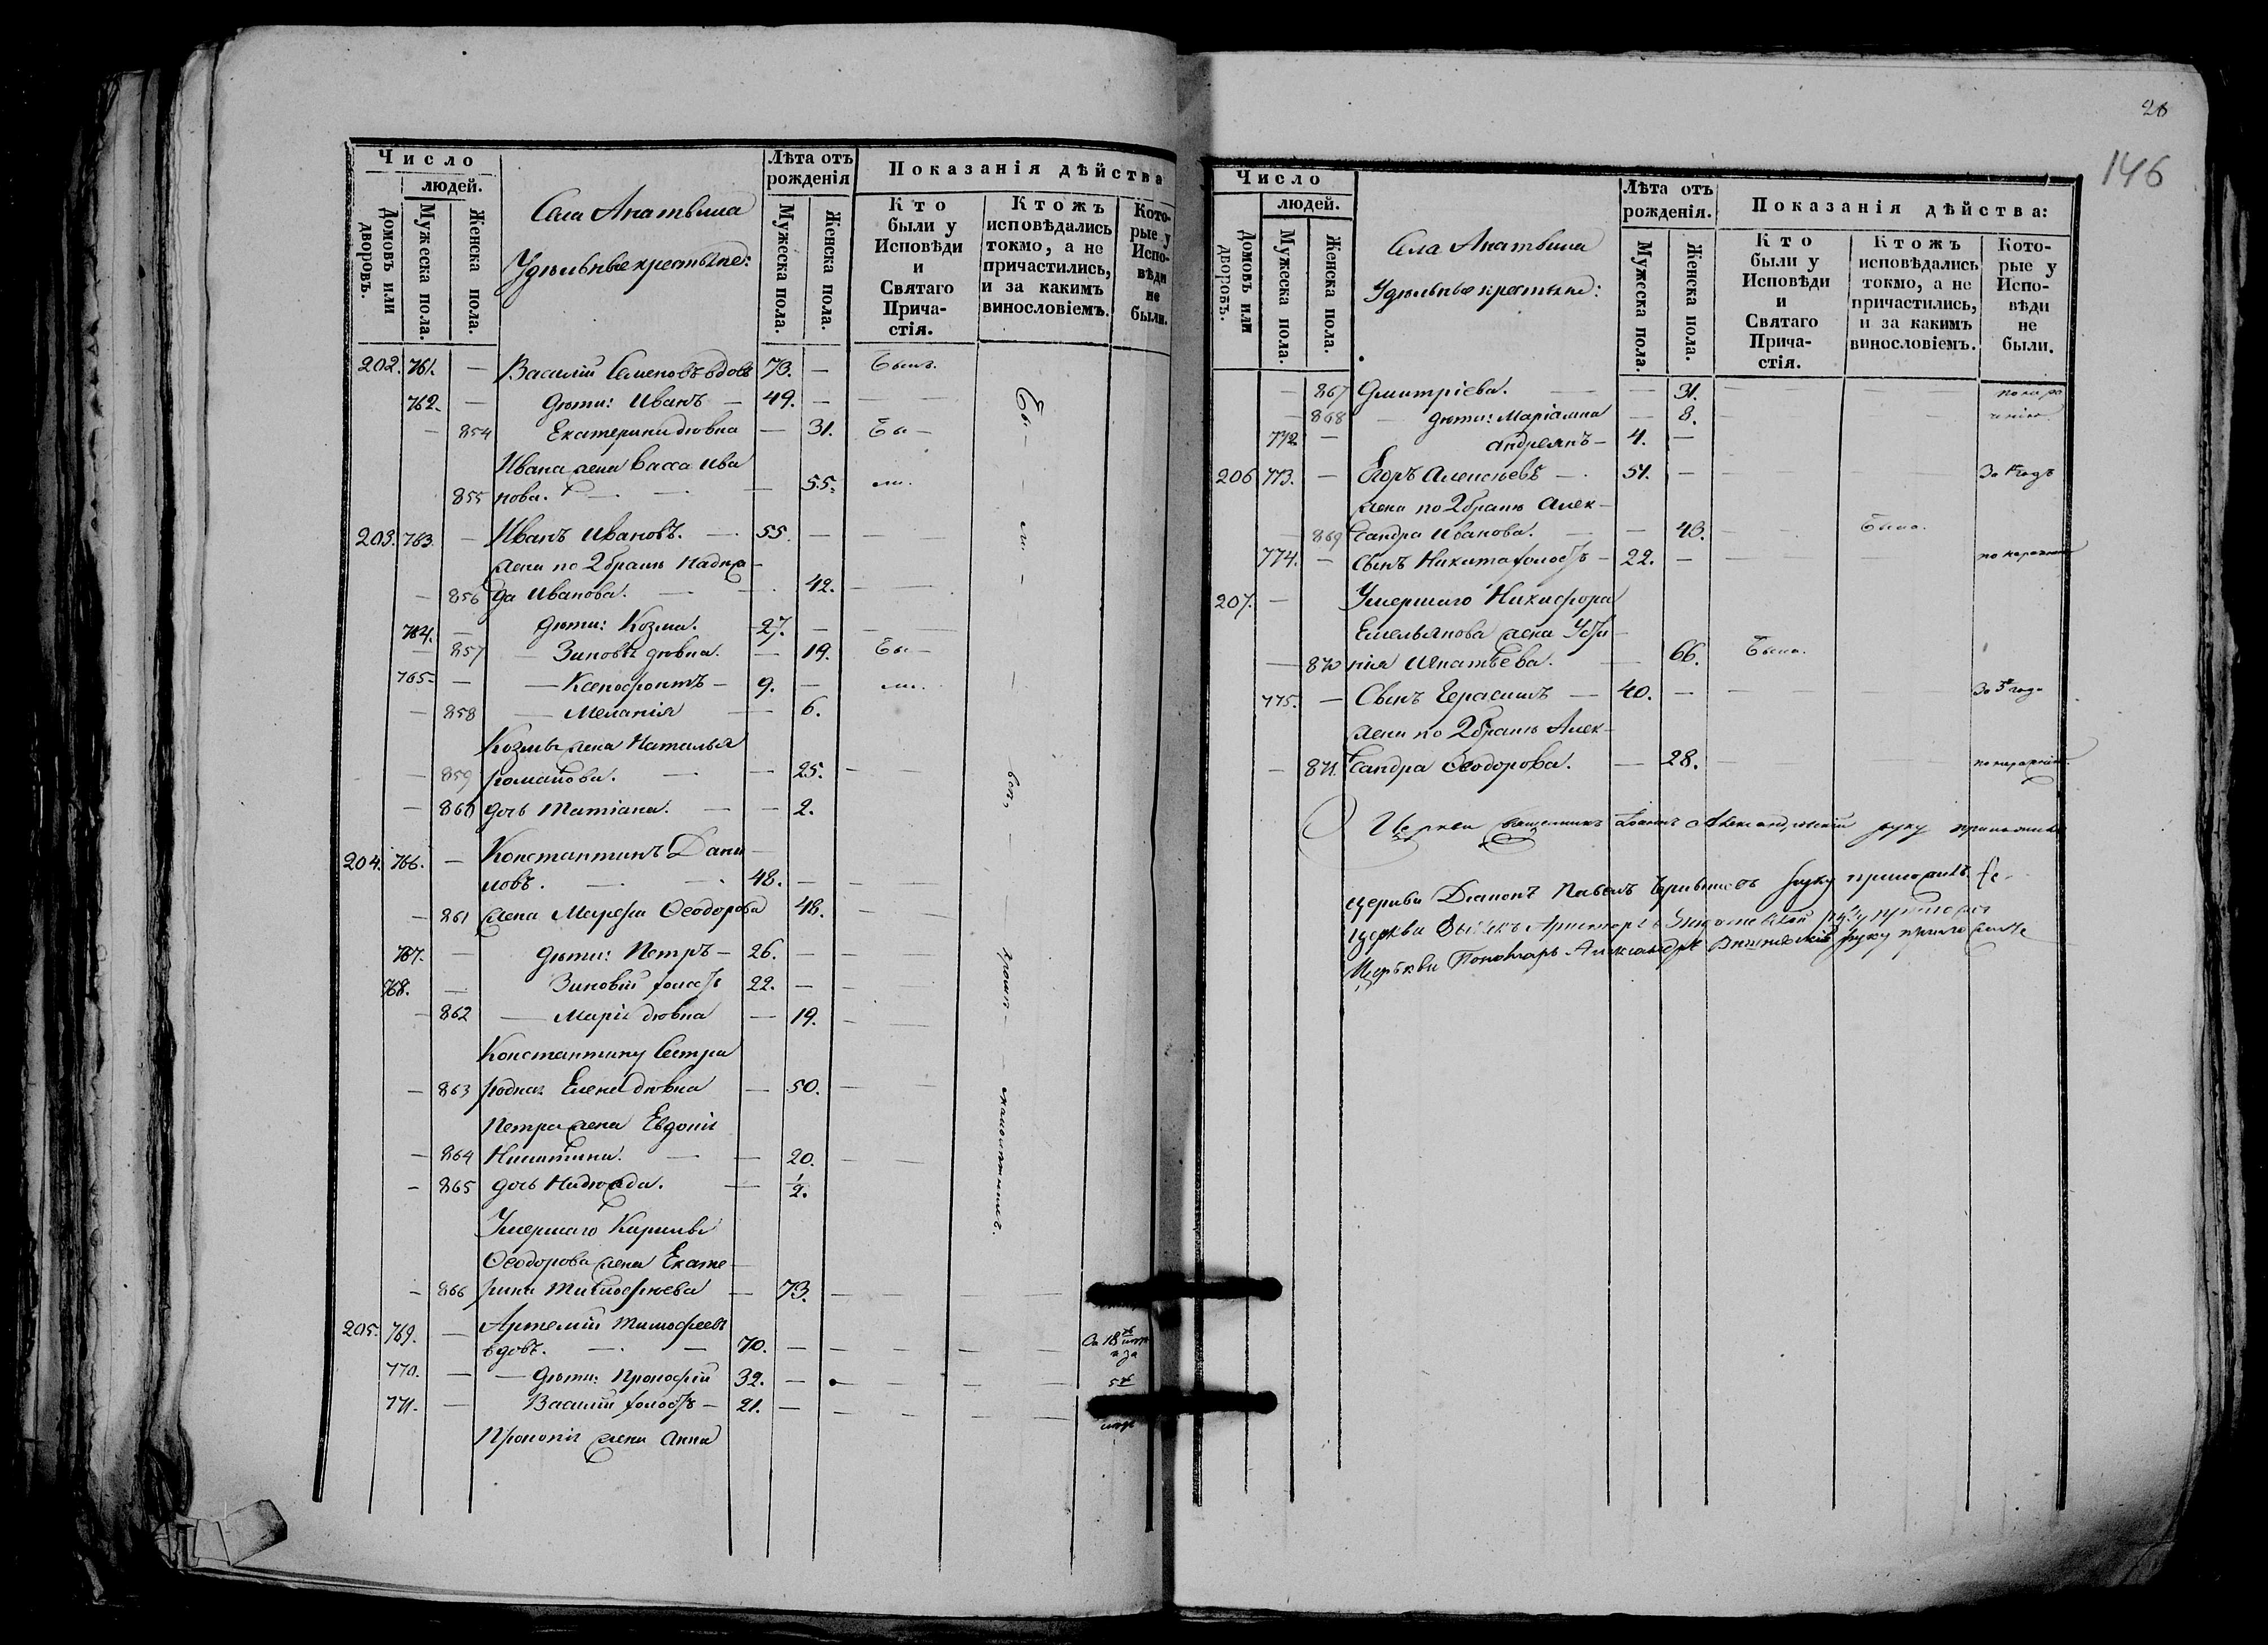 Число
людей.
Домовъ или дворовъ.
Мужеска пола.
Женска пола.
Села Апатьина
Удѣльные крестьяне:
Лѣта отъ
рожденія
Мужеска пола.
Женска пола.
Показанія дѣйства
Кто
были у
Исповѣди
и
Святаго
Прича-
стія.
Ктожъ
исповѣдались
токмо, а не
причастились,
и за какимъ
винословіемъ.
Кото-
рые у
Испо-
вѣди
не
были.
202. 761. — Василій Семеновъ вдовъ 73. — Былъ.
762. — Дѣти: Иванъ — 49. —
— 854 Екатерина дѣвка — 31. Бы —
Ивана жена Васса Ива
855 нова. — 55. ли.
203. 763. — Иванъ Ивановъ. — 55. —
жена по 2 бракѣ Надеж-
— 856 да Иванова. — 42. —
764. — Дѣти: Козма. 27. —
— 857 — Зиновія дѣвка. — 19. Бы —
765. — — Ксенофонтъ — 9. — ли.
— 858 — Меланія — 6.
Козмы жена Наталья
— 859 романова. — 25. —
— 860 дочь Татіана. — 2.
204. 766. — Константинъ Дани
ловъ. — 48. —
— 861 жена Марѳа Ѳеодорова 48. —
767. — Дѣти: Петръ — 26. —
768. — Зиновій холостъ 22. —
— 862 — Марія дѣвка — 19. —
Константину Сестра
— 863 родная Елена дѣвка — 50. —
Петра жена Евдокія
— 864 Никитина. — 20. —
— 865 дочь Надежда. — 1/2.
Умершаго Кирилы
Ѳеодорова жена Екате-
— 866 рина Тимофѣева — 73. —
205. 769. — Артемій Тимофеевъ
вдовъ. — 70. —
770. — — Дѣти: Прокофій 32. —
771. — Василій холостъ — 21. —
Прокопія жена Анна
Бы — ли —
кромѣ — малолѣтнихъ.
20
146
Число
людей.
Домовъ или дворовъ.
Мужеска пола.
Женска пола.
Села Апатьина
Удѣльные крестьяне:
Лѣта отъ
рожденія.
Мужеска пола.
Женска пола.
Показанія дѣйства:
Кто
были у
Исповѣди
и
Святаго
Прича-
стія.
Ктожъ
исповѣдались
токмо, а не
причастились,
и за какимъ
винословіемъ.
Кото-
рые у
Испо-
вѣди
не
были.
— 867 Дмитріева. — 31. — по нера
— 868 — Дѣти: Маріамна — 8. — дѣнію
772. — Андреянъ — 4. —
206 773. — Егоръ Алексѣевъ — 51. —
жена по 2 бракѣ Алек-
— 869 сандра Иванова. — 43. — Была.
774. — Сынъ Никита холостъ — 22. —
207. — Умершаго Никифора
Емельянова жена Усти-
— 870 нія Игнатьева. — 66. Была.
775. — Сынъ Герасимъ — 40. —
жена по 2 бракѣ Алек-
— 871. сандра Ѳеодорова. — 28. —
Церкви Священникъ Іоаннъ Александровскій руку приложилъ
церкви Діаконъ Павелъ руку приложилъ
церкви руку приложилъ
Церкви Пономарь Александръ руку приложилъ